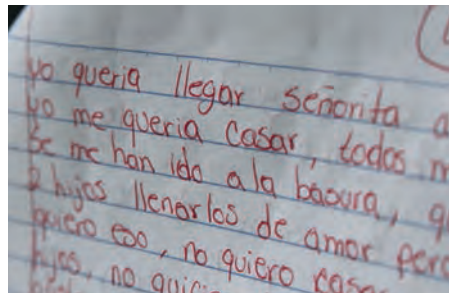 yo queria llegar señorita a
yo me queria casar, todos m
se me han ido a la basura, q
2 hijos llenarlos de amor pero
quiero eso, no quiero casa
hijos, no quie